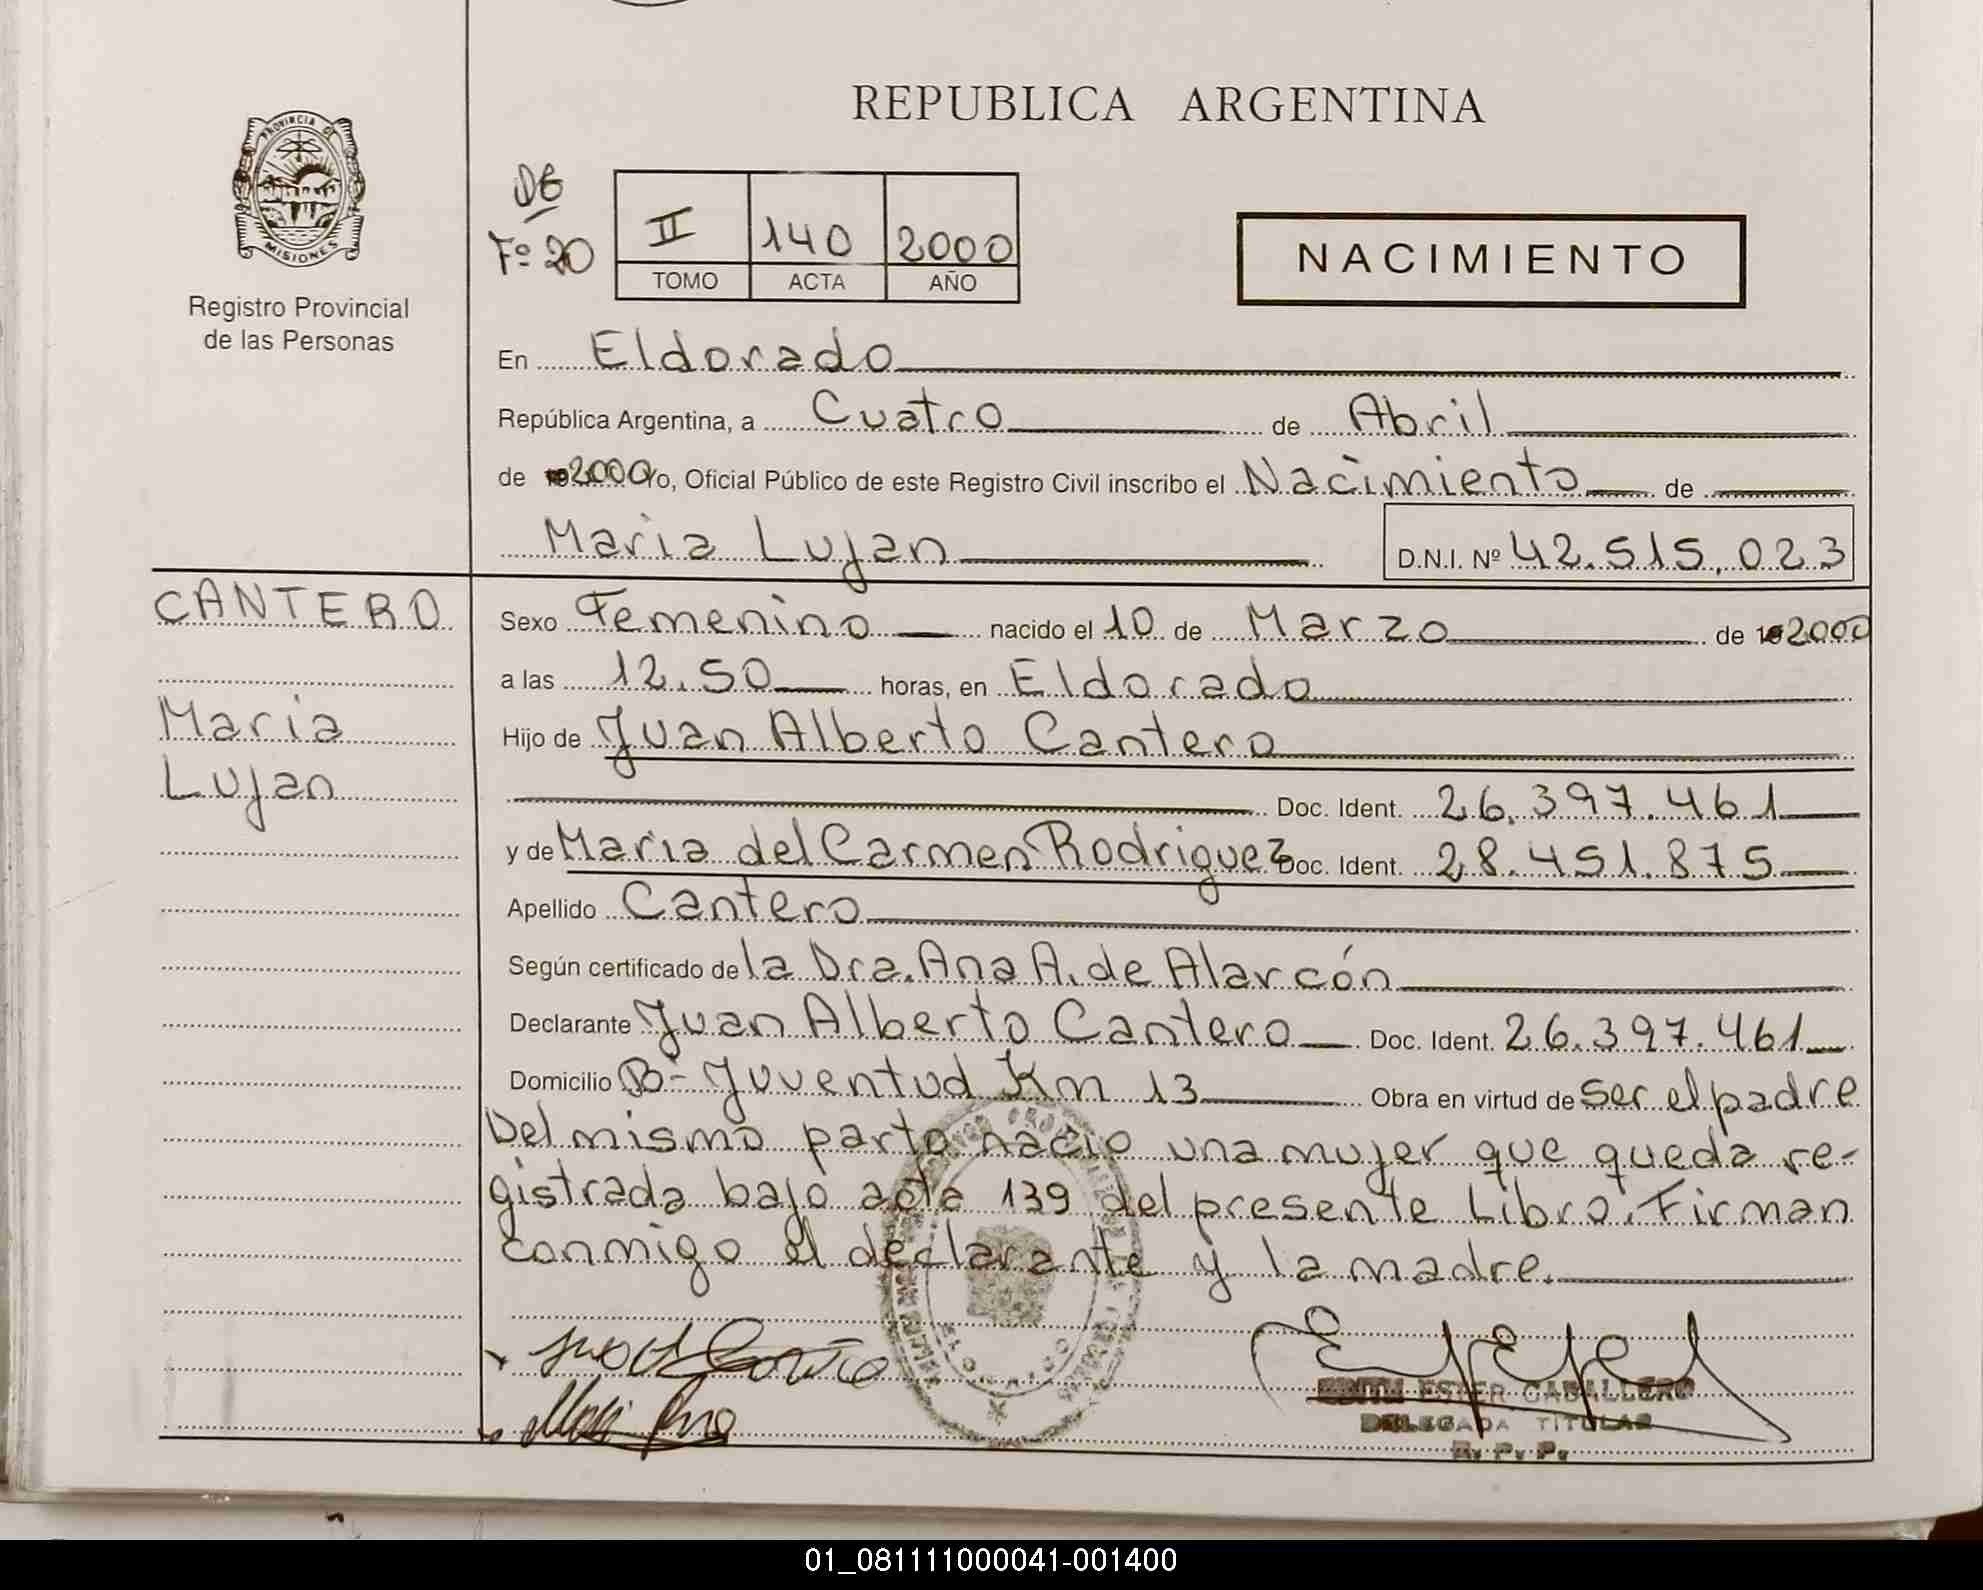 REPUBLICA ARGENTINA
PROVINCIA DE
MISIONES
Registro Provincial
de las Personas
DE
Fº 20
II 140 2000
TOMO ACTA AÑO
NACIMIENTO
En Eldorado
República Argentina, a Cuatro de Abril
de 2000 Yo, Oficial Público de este Registro Civil inscribo el Nacimiento de
Maria Lujan D.N.I. Nº 42.515.023
CANTERO
Maria
Lujan
Sexo Femenino nacido el 10 de Marzo de 2000
a las 12.50 horas, en Eldorado
Hijo de Juan Alberto Cantero
Doc. Ident. 26.397.461
y de Maria del Carmen Rodriguez Doc. Ident. 28.451.875
Apellido Cantero
Según certificado de la Dra. Ana A. de Alarcón
Declarante Juan Alberto Cantero Doc. Ident. 26.397.461
Domicilio Bº Juventud Km 13 Obra en virtud de ser el padre
Del mismo parto nacio una mujer que queda re-
gistrada bajo acta 139 del presente Libro. Firman
conmigo el declarante y la madre.
EDITH ESTER CABALLERO
DELEGADA TITULAR
R. P. P.
01_081111000041-001400